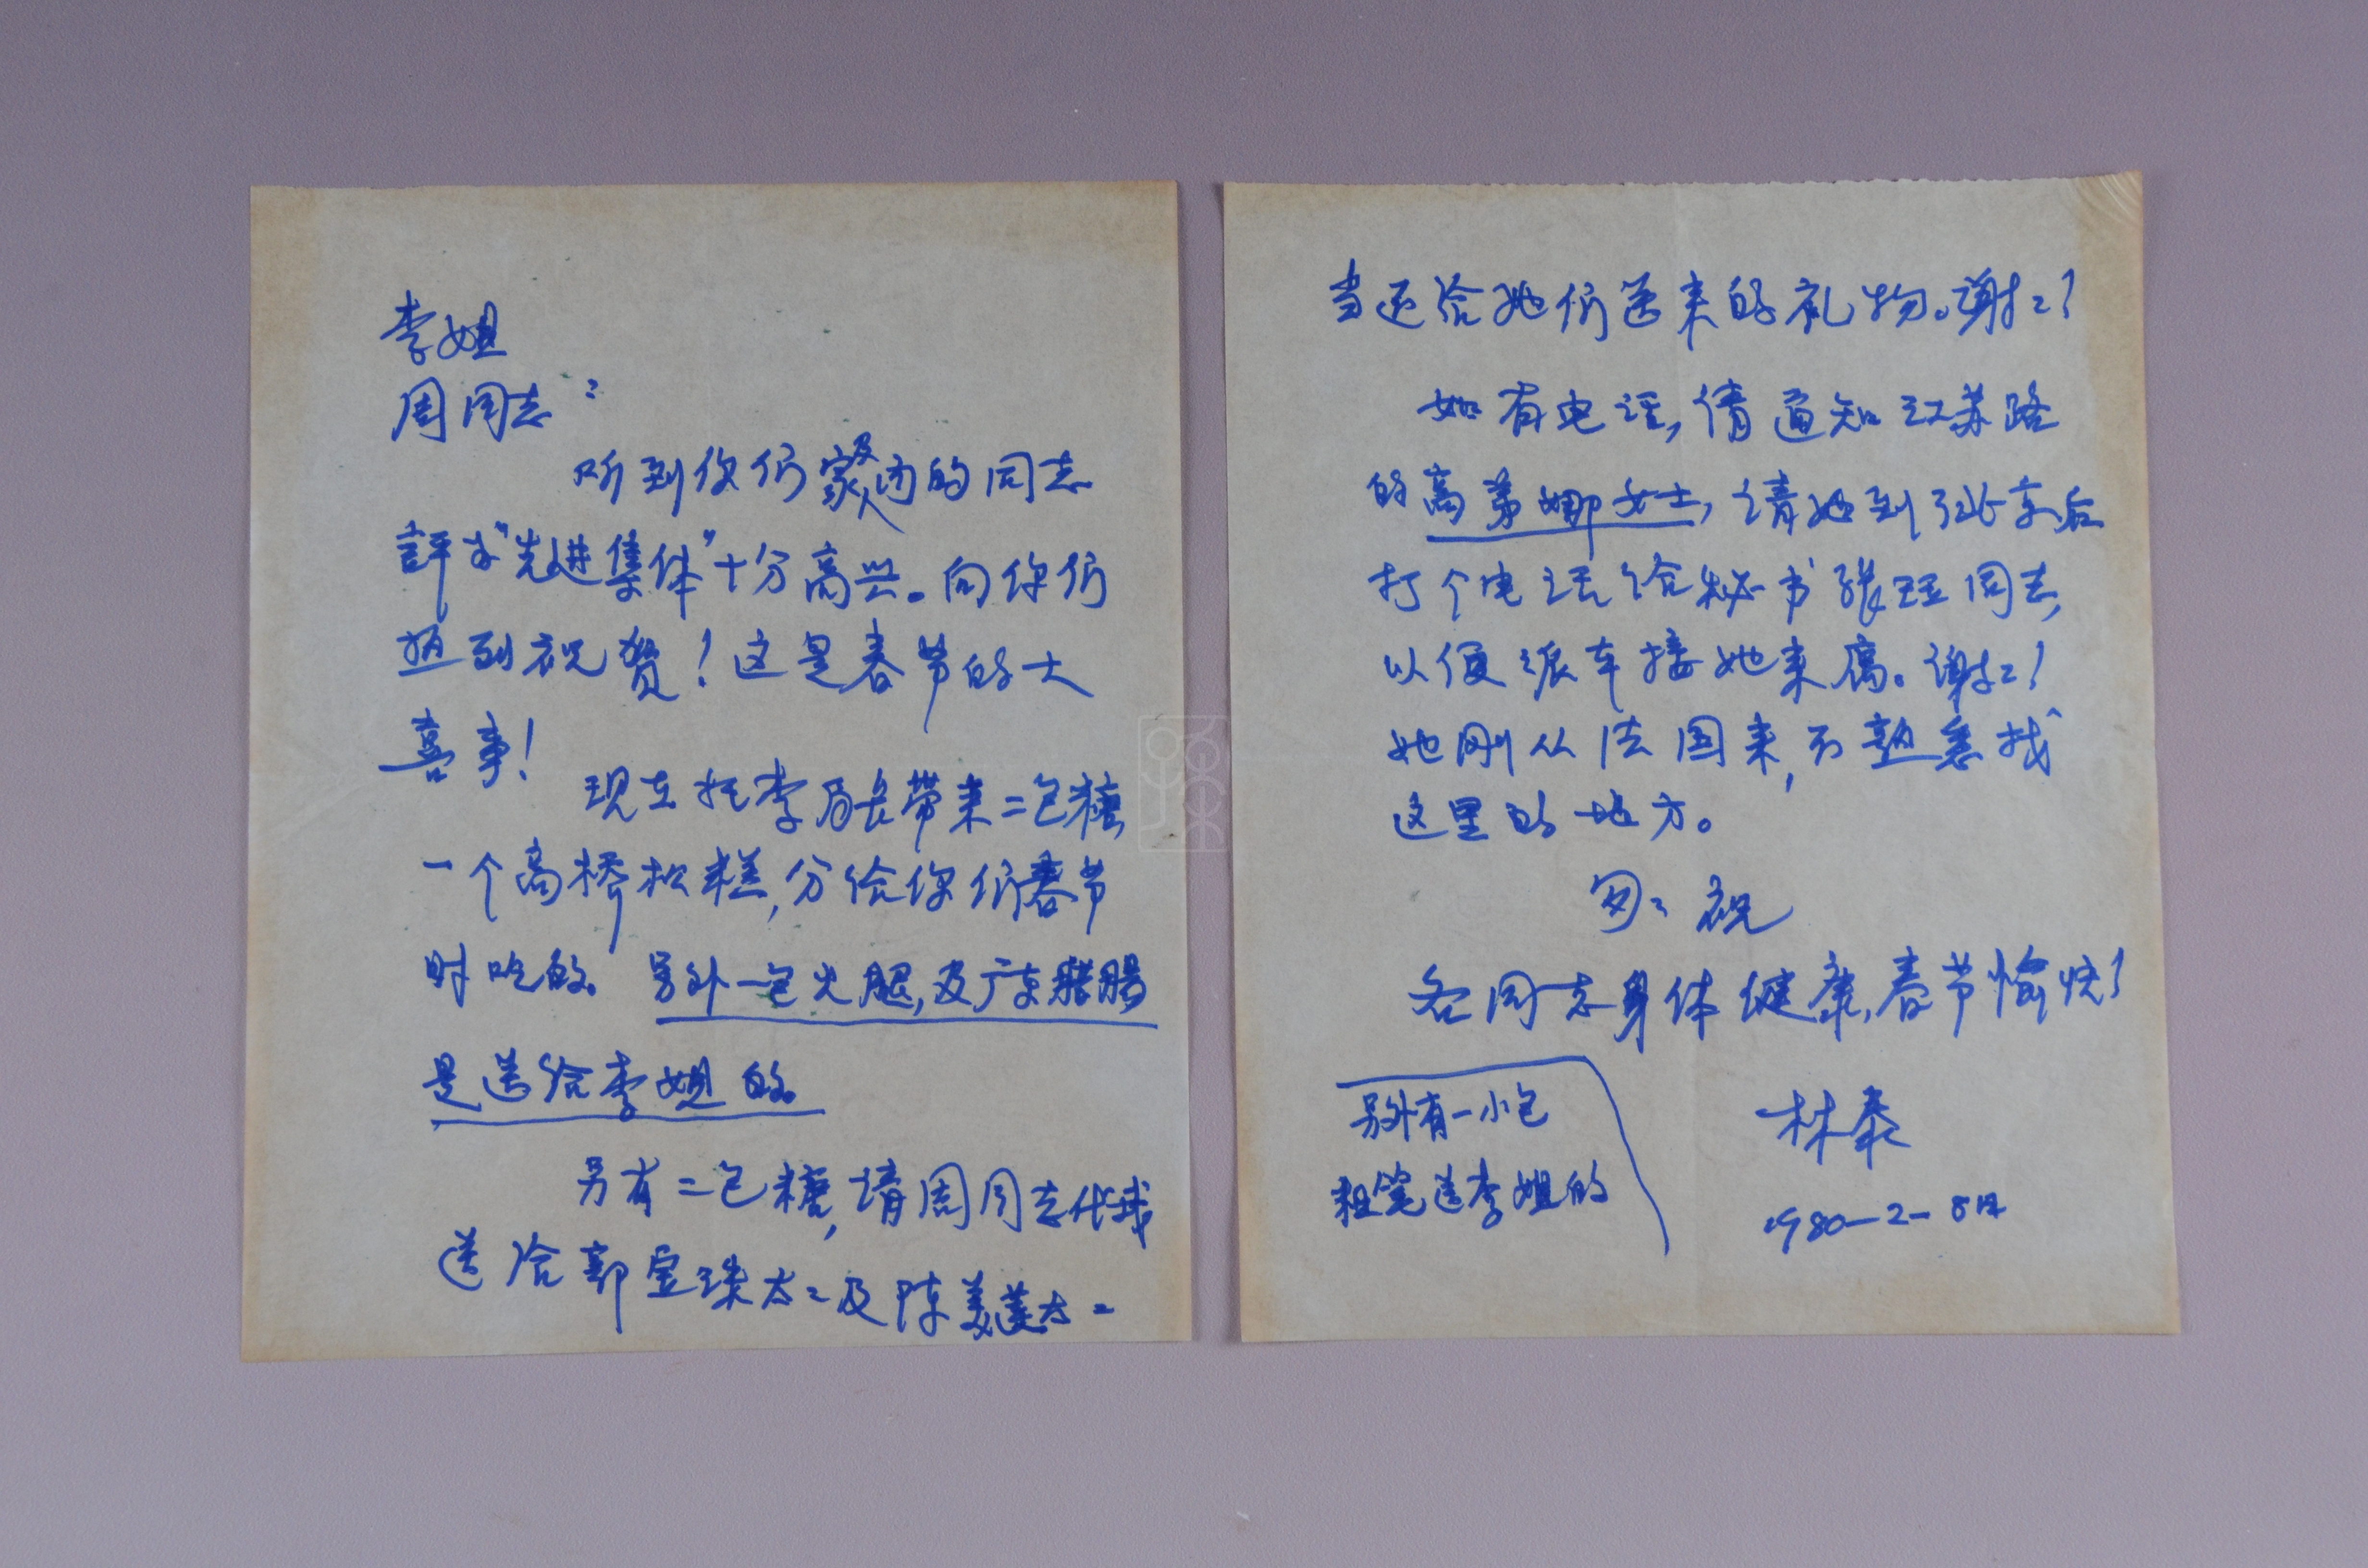 李姐
周同志：
听到你们家及内的同志
評为“先进集体”十分高兴。向你们
表到祝贺！这是春节的大
喜事！
现在托李局长带来二包糖，
一个高桥松糕，分给你们春节
时吃的。另外一包火腿，及广东腊腸
是送给李姐的。
另有二包糖，请周同志代我
送给郭宝珠太々及陈美蓮太々
当还给她们送来的礼物。谢々！
如有电话，倩通知江苏路
的高弟娜女士，请她到了北京后
打个电话给秘书张珏同志，
以便派车接她来寓。谢々！
她刚从法国来，不熟悉找
这里的地方。
匆々祝
各同志身体健康，春节愉快！
另外有一小包
粗篦送李姐的
林泰
1980-2-8日